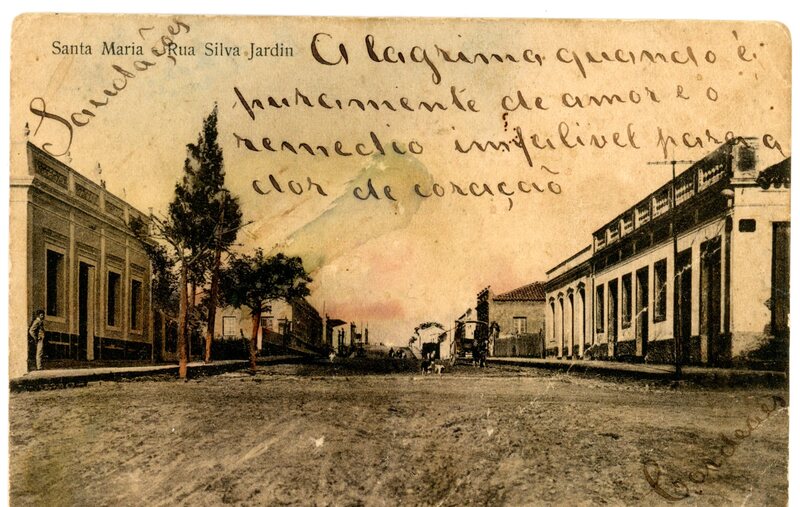 Santa Maria - Rua Silva Jardin
Saudações
A lagrima quando é
puramente de amor e o
remedio imfalivel para a
dor de coração
Cardenes